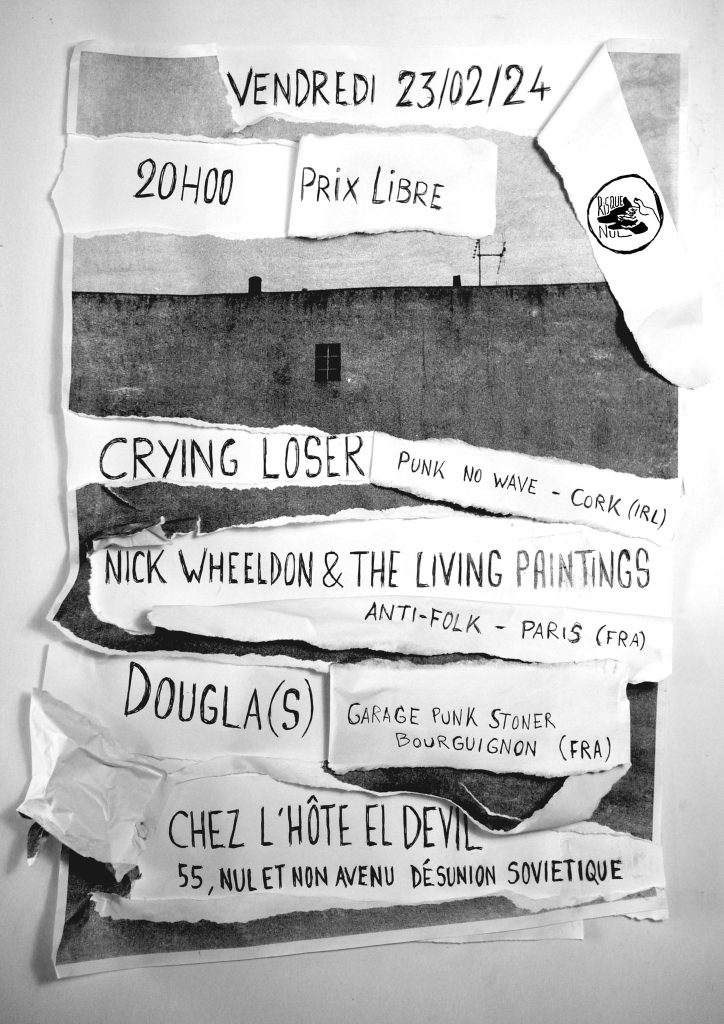 VENDREDI 23/02/24
20H00
PRIX LIBRE
RISQUE
NUL
CRYING LOSER
PUNK NO WAVE - CORK (IRL)
NICK WHEELDON & THE LIVING PAINTINGS
ANTI-FOLK - PARIS (FRA)
DOUGLA(S)
GARAGE PUNK STONER
BOURGUIGNON (FRA)
CHEZ L'HÔTE EL DEVIL
55, NUL ET NON AVENU DÉSUNION SOVIETIQUE